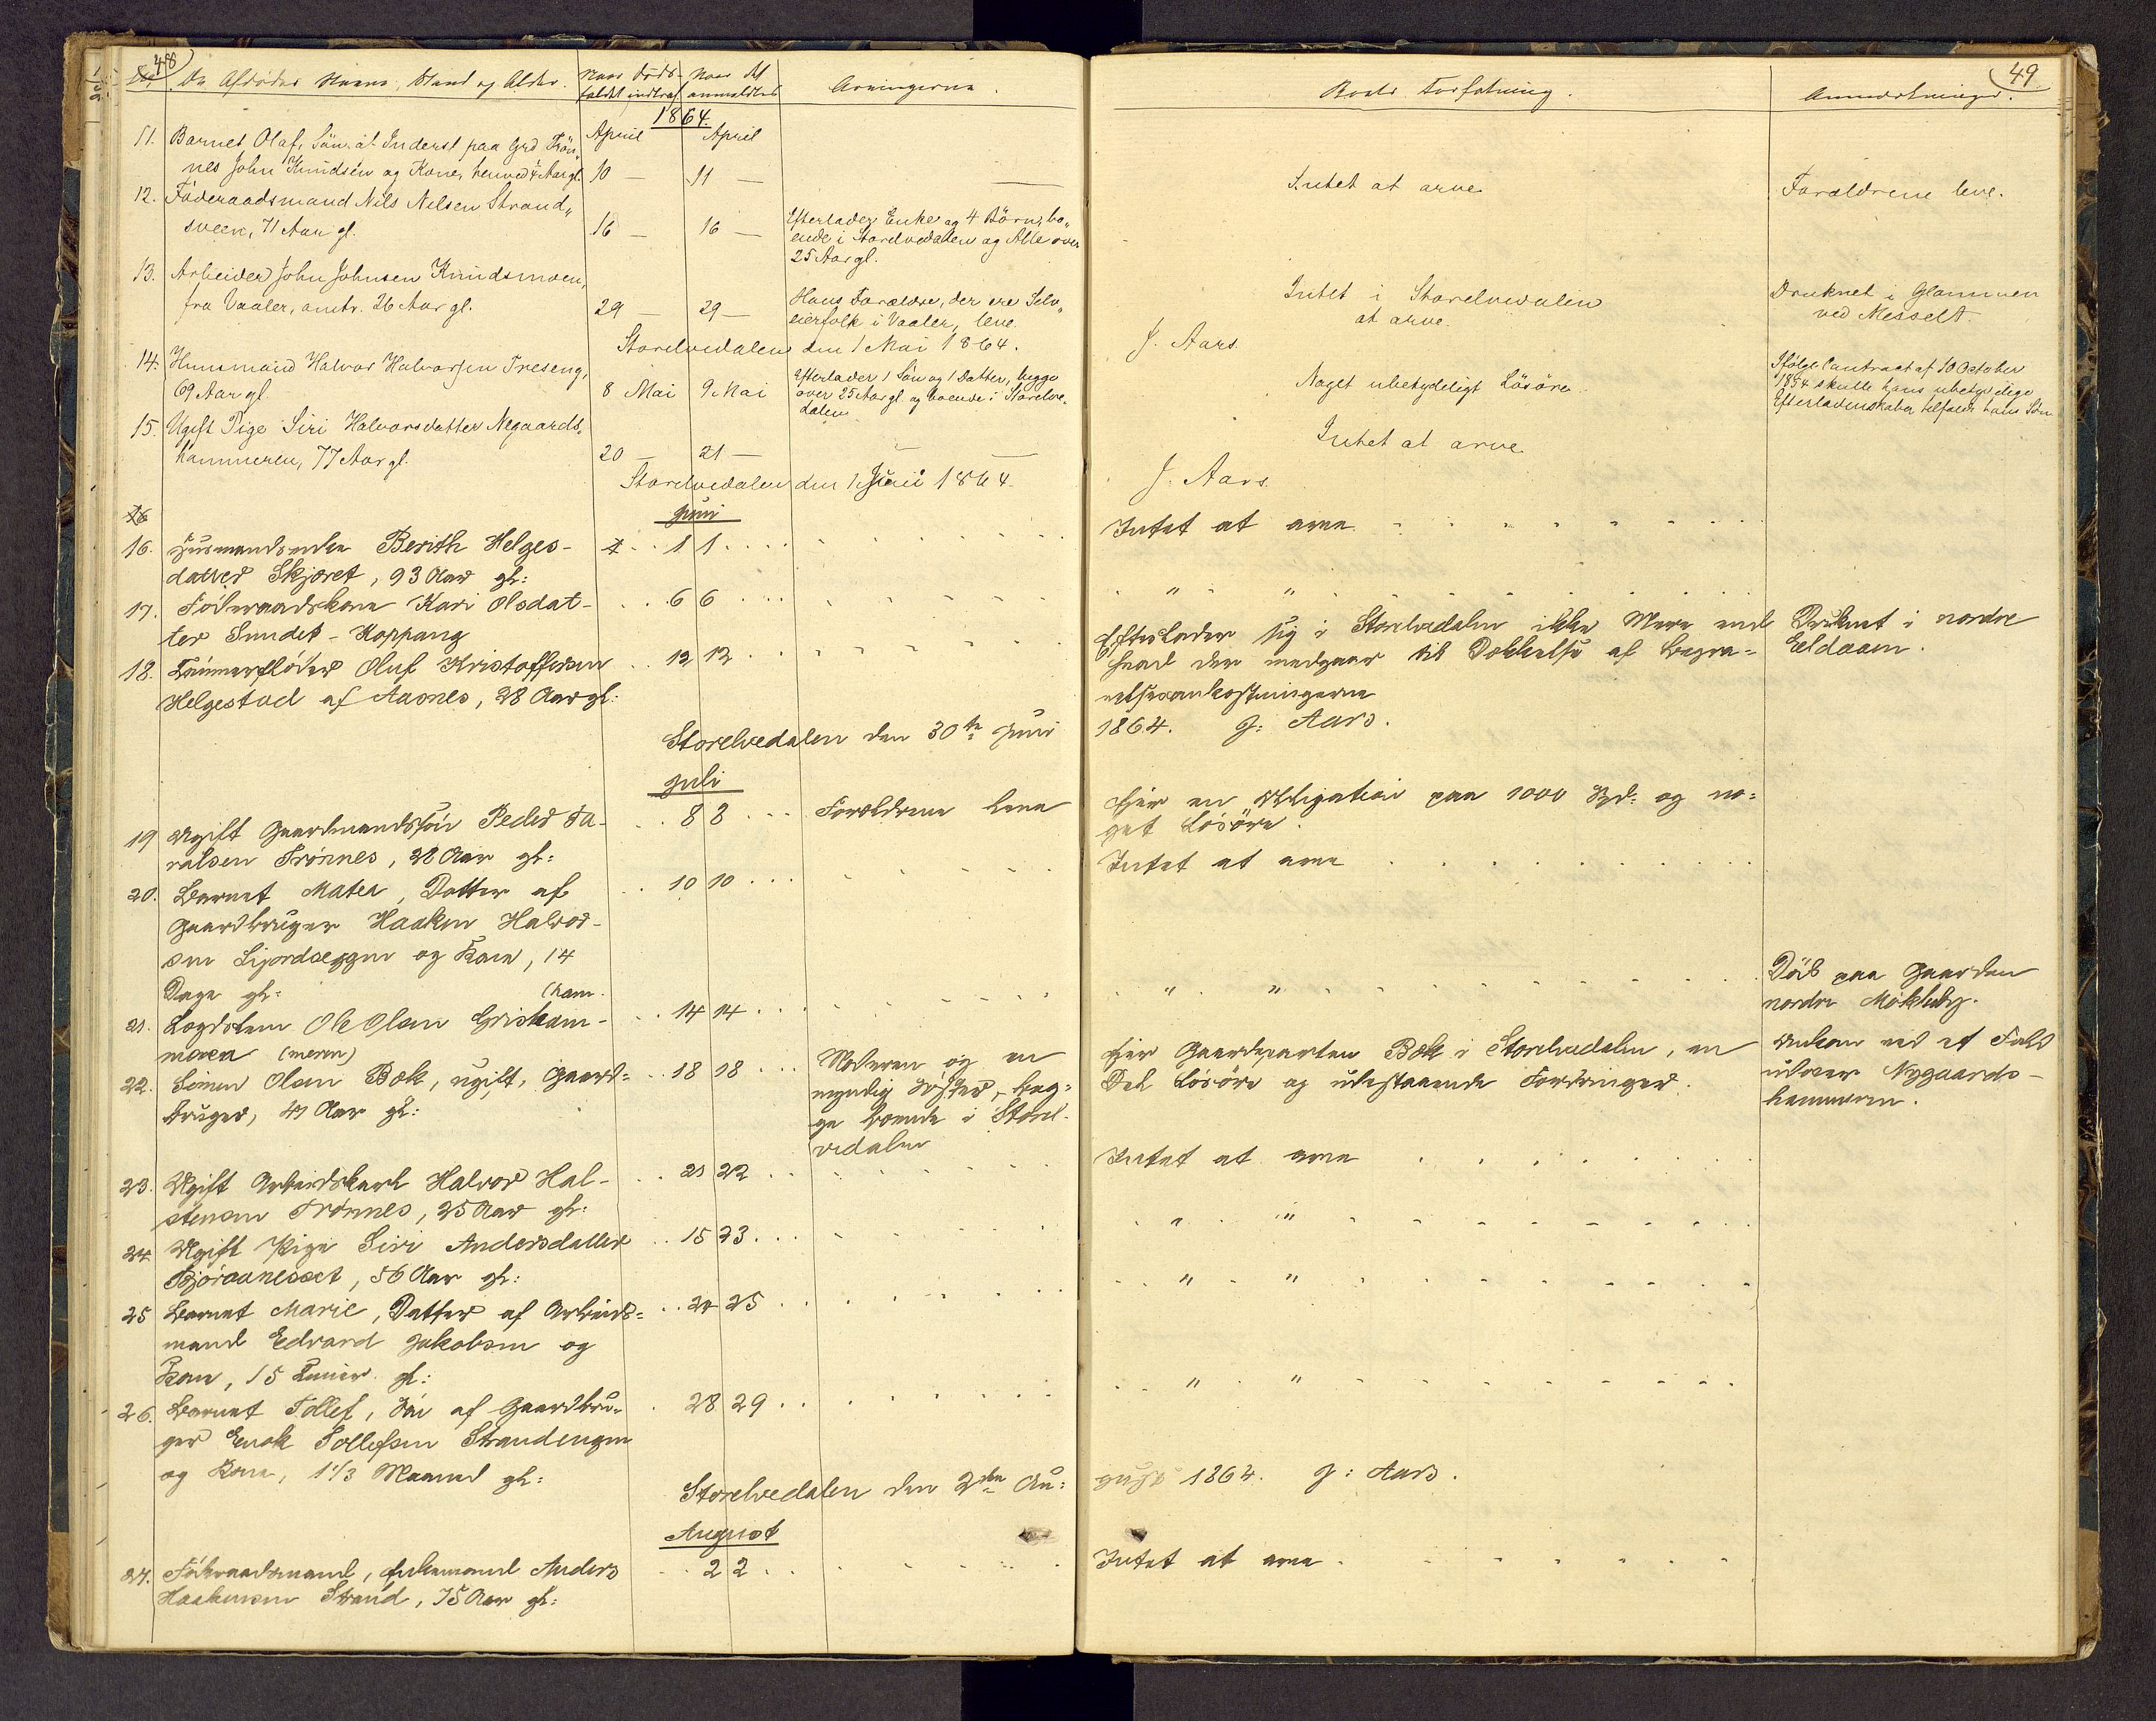 48
De Afdødes Navne, Stand og Alder.
Naar Døds-
faldet indtraf
Naar det
anmeldtes
Arvingerne.
1864.
11. Barnet Olaf, Søn af Inderst paa Grd Trön„
nes John Knudsen og Kone, henved 4 Aar gl.
April April
10 — 11 —
12. Föderaadsmand Nils Nilsen Strand„
sveen, 71 Aar gl.
16 — 16 —
Efterlader Enke og 4 Börn, bo„
ende i Storelvedalen og Alle over
25 Aar gl.
13. Arbeider John Johnsen Knudsmoen,
fra Vaaler, omtr. 26 Aar gl.
29 — 29 —
Hans Forældre, der ere Selv„
eierfolk i Vaaler, leve.
Storelvedalen den 1 Mai 1864.
14. Huusmand Halvor Halvorsen Treseng,
69 Aar gl.
8 Mai 9 Mai
Efterlader 1 Sön og 1 Datter, begge
over 25 Aar gl. og boende i Storelve„
dalen
15. Ugift Pige Siri Halvorsdatter Negaards„
hammeren, 77 Aar gl.
20 — 21 —
Storelvedalen den 1 Juni 1864.
16
Juni
16. Husmandsenke Berith Helges-
datter Skjæret, 93 Aar gl:
1 1
17. Föderaadskone Kari Olsdat-
ter Sundet-Koppang
6 6
18. Tømmerfløder Oluf Kristoffersen
Helgestad af Aasnes, 28 Aar gl:
12 12
Storelvedalen den 30te Juni
Juli
19 Ugift Gaardmandssøn Peder Ta-
ralsen Trønnes, 28 Aar gl:
8 8 Forældrene leve
20. Barnet Matea, Datter af
Gaardbruger Haaken Halvor-
sen Lijordseggen og Kone, 14
Dage gl:
10 10
(ham-
21. Logdslem Ole Olsen Griskam-
moen (meren)
14 14
22. Simen Olsen Bæk, ugift, Gaard-
bruger, 41 Aar gl:
18 18
Moderen og en
myndig Søster, beg-
ge boende i Storel-
vedalen
23. Ugift Arbeidskarl Halvor Hal-
stensen Trønnes, 25 Aar gl:
21 22
24 Ugift Pige Siri Andersdatter
Bjøraanesset, 56 Aar gl:
15 23
25 Barnet Marie, Datter af Arbeids-
mand Edvard Jakobsen og
Kone, 15 Timer gl:
24 25
26. Barnet Tollef, Søn af Gaardbru-
ger Enok Tollefsen Strandengen
og Kone, 1 1/3 Maaned gl:
28 29
Storelvedalen den 2den Au-
August
27. Föderaadsmand, Enkemand Anders
Haakensen Strand, 75 Aar gl:
2 2
49
Boets Forfatning.
Anmærkninger.
Intet at arve
Forældrene leve.
Intet i Storelvedalen
at arve.
Druknet i Glommen
ved Messelt.
J. Aars.
Noget ubetydeligt Lösöre
Ifølge Contract af 10 October
1854 skulle hans ubetydelige
Efterladenskaber tilfalde hans Sön
Intet at arve
J. Aars.
Intet at arve
" "
Efterlader sig i Storelvedalen ikke Mere end
hvad der medgaar til Dækkelse af Begra-
velsesomkostningerne
Druknet i nordre
Eldaaen.
1864. J: Aars.
Eier en Obligation paa 1000 Spd: og no-
get Løsøre.
Intet at arve
" "
Død paa Gaarden
nordre Møkleby.
Eier Gaardparten Bæk i Storelvedalen, en
Del Løsøre og udestaaende Fordringer.
Omkom ved et Fald
udover Nygaards-
hammeren.
Intet at arve
" "
" "
" "
gust 1864. J: Aars.
Intet at arve